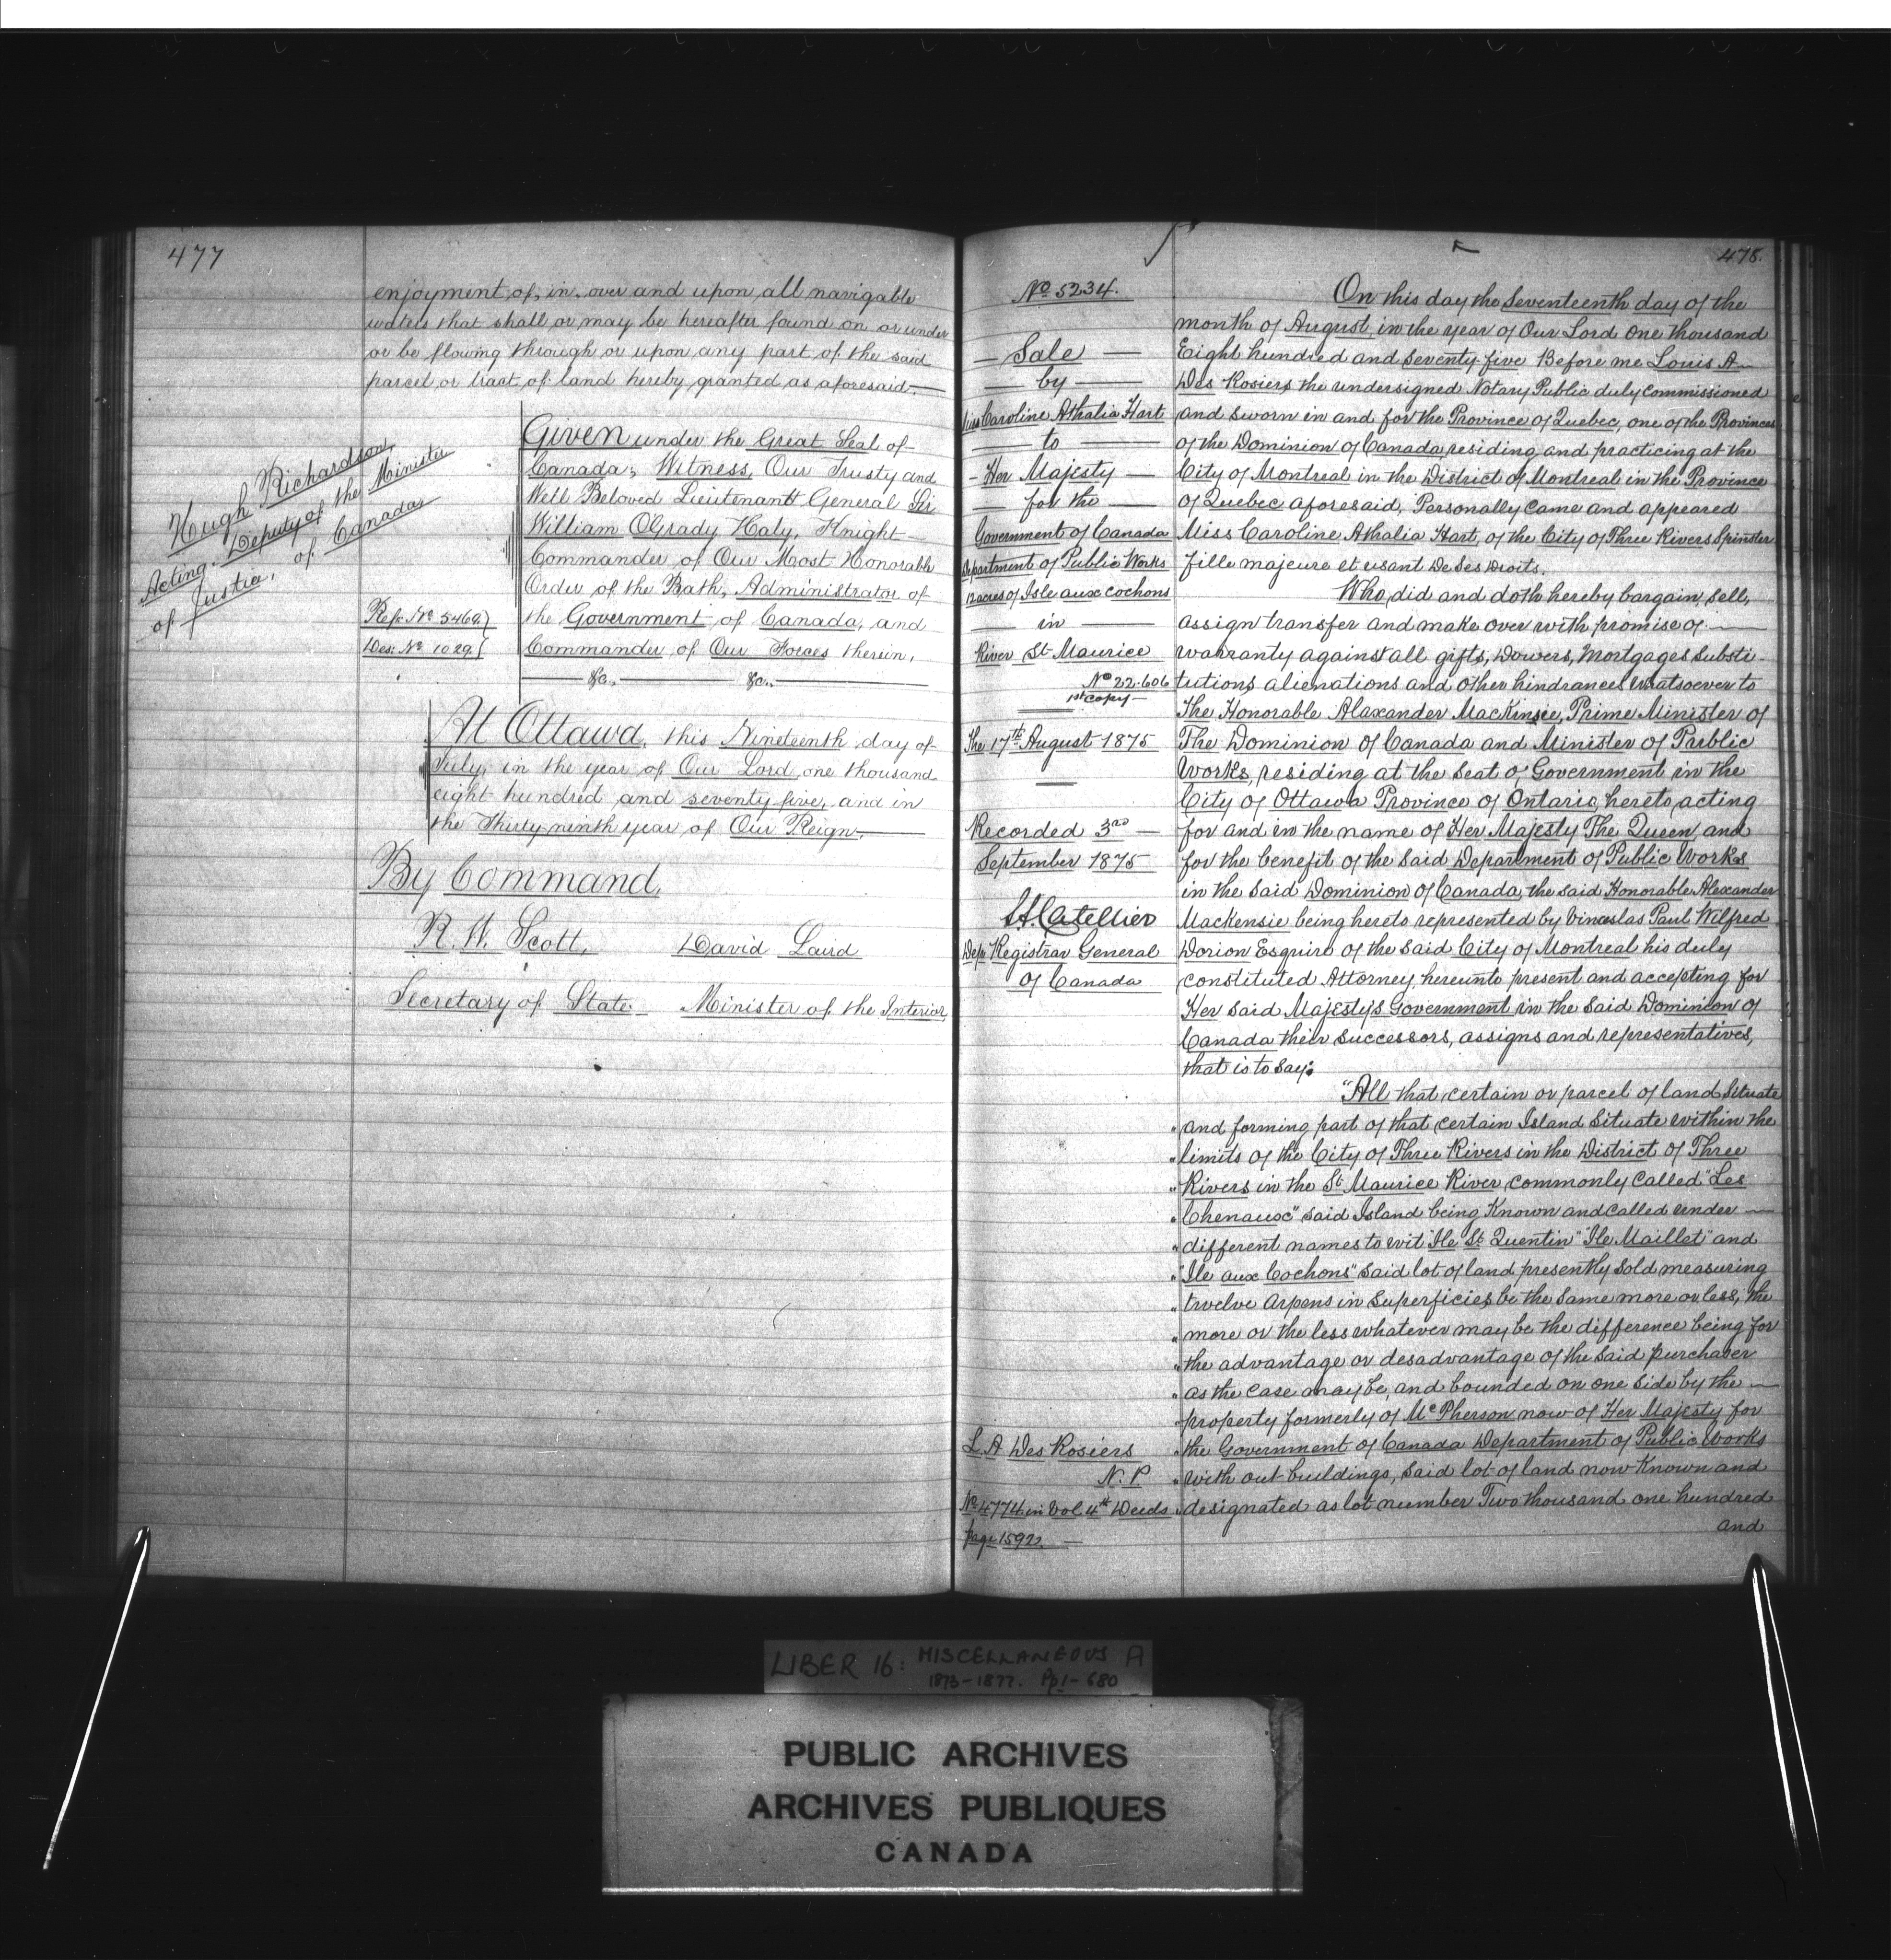 477
enjoyment, of, in, over and upon all navigable
waters that shall or may be hereafter found on or under
or be flowing through or upon any part of the said
parcel or tract of land hereby granted as aforesaid.
Hugh Richardson
Acting Deputy of the Minister
of Justice, of Canada
Given under the Great Seal of
Canada; Witness, Our Trusty and
Well Beloved Lieutenantt General Sir
William O'Grady Haly, Knight
Commander of Our Most Honorable
Order of the Bath, Administrator of
the Government of Canada, and
Commander of Our Forces therein,
&c. &c.
Refe No 5469
Des: No 1029
At Ottawa, this Nineteenth day of
July, in the year of Our Lord one thousand
eight hundred and seventy five, and in
the Thirty ninth year of Our Reign,
By Command,
R. W. Scott, David Laird
Secretary of State Minister of the Interior,
478.
No 5234.
Sale
by
Miss Caroline Athalia Hart
to
Her Majesty
for the
Government of Canada
Department of Public Works
12 acres of Isle aux Cochons
in
River St Maurice
No 22.606
1st copy
The 17th August 1875
Recorded 3rd
September 1875
Catellier
Dep: Registrar General
of Canada
L. A Des Rosiers
N. P.
No 4774 in Vol 4th Deeds
page 1592.
On this day the Seventeenth day of the
month of August, in the year of Our Lord one thousand
Eight hundred and seventy-five Before me Louis A
Des Rosiers, the undersigned Notary Public duly commissioned
and sworn in and for the Province of Quebec, one of the Provinces
of the Dominion of Canada, residing and practicing at the
City of Montreal in the District of Montreal in the Province
of Quebec aforesaid, Personally came and appeared
Miss Caroline Athalia Hart, of the City of Three Rivers Spinster
fille majeure et usant de ses droits.
Who did and doth hereby bargain, sell,
assign transfer and make over with promise of
warranty against all gifts, Dowers, Mortgages Substi-
tutions alienations and other hindrances whatsoever to
The Honorable Alaxander MacKinsie, Prime Minister of
The Dominion of Canada and Minister of Public
Works, residing at the Seat of Government in the
City of Ottawa Province of Ontario, hereto acting
for and in the name of Her Majesty The Queen, and
for the benefit of the said Department of Public Works
in the said Dominion of Canada, the said Honorable Alexander
Mackensie being hereto represented by Vinceslas Paul Wilfred
Dorion Esquire of the said City of Montreal his duly
constituted Attorney, hereunto present and accepting for
Her said Majesty's Government in the said Dominion of
Canada their successors, assigns and representatives,
that is to say:
"All that certain or parcel of land situate
" and forming part of that certain Island situate within the
" limits of the City of Three Rivers in the District of Three
" Rivers in the St Maurice River, commonly called "Les
" Chenaux" said Island being Known and called under
" different names to wit "Ile St Quentin" "Ile Maillet" and
" "Ile aux Cochons" said lot of land presently sold measuring
" twelve Arpens in Superficies be the same more or less, the
" more or the less whatever may be the difference being for
" the advantage or desadvantage of the said purchaser
" as the case may be, and bounded on one side by the
" property formerly of McPherson now of Her Majesty for
" the Government of Canada Department of Public Works
" with out-buildings, said lot of land now Known and
" designated as lot number Two thousand one hundred
and
LIBER 16: MISCELLANEOUS A
1873-1877. Pp1-680
PUBLIC ARCHIVES
ARCHIVES PUBLIQUES
CANADA